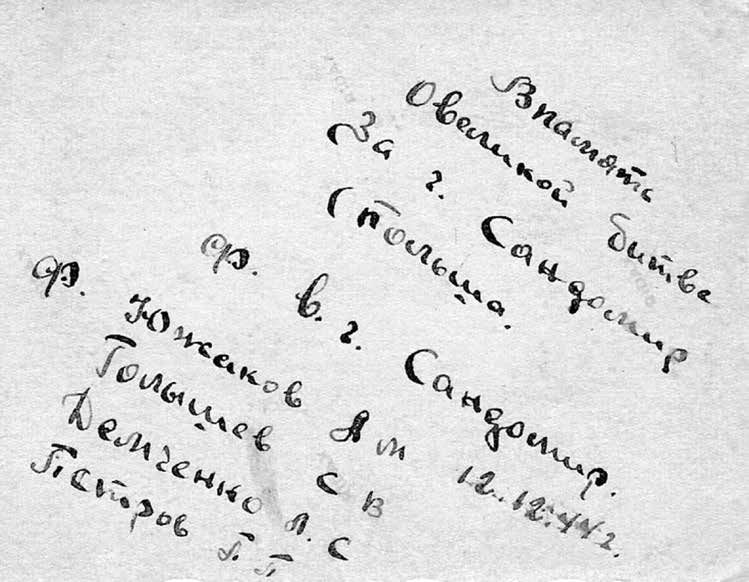 Впамять
Овеликой битве
За г. Сандомир
(Польша.
ф. в. г. Сандомир.
12.12.44г.
ф. Южаков А М
Голышев С В
Демченко Л. С
Петров Г. П